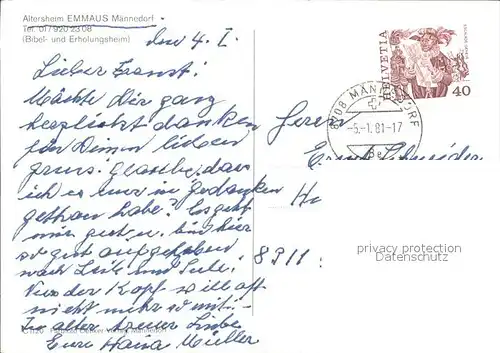 Altersheim EMMAUS Männedorf
Tel. 01/920 23 08
(Bibel- und Erholungsheim)
den 4. I.
Lieber Ernst!
Möchte Dir ganz
herzlichst danken
für Deinen lieben
gruss: glaubte, dass
ich es nur in gedanken
gethan habe? Es geht
mir gut u. bin hier
so gut aufgehoben
nach Leib und Seele.
Nur der Kopf will oft
nicht mehr so mit.
In alter treuer Liebe
Eure Hanna Müller
HELVETIA
40
8708 MÄNNEDORF
-5.-1.81-17
Herrn
Ernst Schneider
8311
privacy protection
Datenschutz